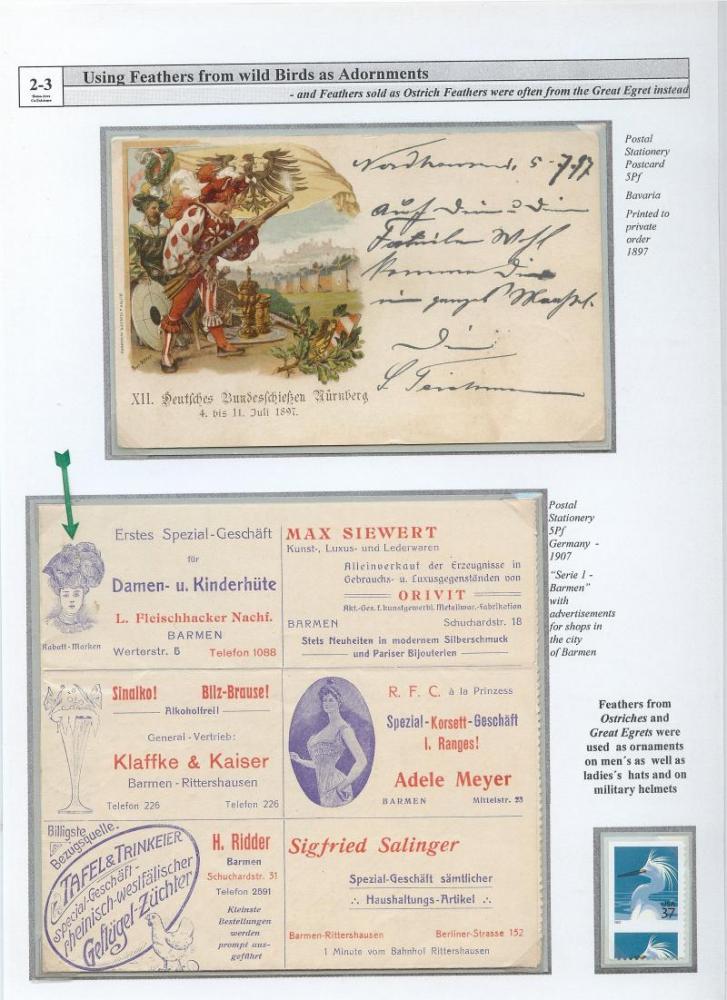 2-3
Using Feathers from wild Birds as Adornments
- and Feathers sold as Ostrich Feathers were often from the Great Egret instead
Postal
Stationery
Postcard
5Pf
Bavaria
Printed to
private
order
1897
5-7.97
XII. Deutsches Bundesschießen Nürnberg
4. bis 11. Juli 1897.
Postal
Stationery
5Pf
Germany -
1907
"Serie 1 -
Barmen"
with
advertisements
for shops in
the city
of Barmen
Erstes Spezial-Geschäft
für
Damen- u. Kinderhüte
L. Fleischhacker Nachf.
BARMEN
Rabatt-Marken
Werterstr. 5 Telefon 1088
MAX SIEWERT
Kunst-, Luxus- und Lederwaren
Alleinverkauf der Erzeugnisse in
Gebrauchs- u. Luxusgegenständen von
ORIVIT
Akt.-Ges. f. kunstgewerbl. Metallwar.-Fabrikation
BARMEN Schuchardstr. 18
Stets Neuheiten in modernem Silberschmuck
und Pariser Bijouterien
Sinalko! Bilz-Brause!
Alkoholfrei!
General-Vertrieb:
Klaffke & Kaiser
Barmen-Rittershausen
Telefon 226 Telefon 226
R. F. C. à la Prinzess
Spezial-Korsett-Geschäft
I. Ranges!
Adele Meyer
BARMEN Mittelstr. 23
Billigste
Bezugsquelle.
TAFEL & TRINKEIER
Special-Geschäft-
rheinisch-westfälischer
Geflügel-Züchter
H. Ridder
Barmen
Schuchardstr. 31
Telefon 2891
Kleinste
Bestellungen
werden
prompt aus-
geführt
Sigfried Salinger
Spezial-Geschäft sämtlicher
∴ Haushaltungs-Artikel ∴
Barmen-Rittershausen Berliner-Strasse 152
1 Minute vom Bahnhof Rittershausen
Feathers from
Ostriches and
Great Egrets were
used as ornaments
on men´s as well as
ladies´s hats and on
military helmets
USA
37